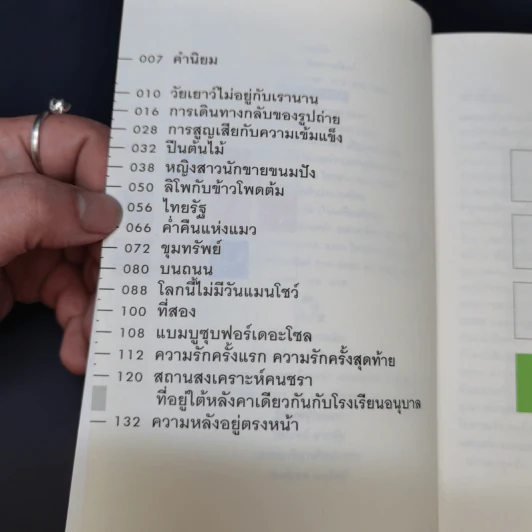 007 คำนิยม
010 วัยเยาว์ไม่อยู่กับเรานาน
016 การเดินทางกลับของรูปถ่าย
028 การสูญเสียกับความเข้มแข็ง
032 ปีนต้นไม้
038 หญิงสาวนักขายขนมปัง
050 ลิโพกับข้าวโพดต้ม
056 ไทยรัฐ
066 ค่ำคืนแห่งแมว
072 ขุมทรัพย์
080 บนถนน
088 โลกนี้ไม่มีวันแมนโชว์
100 ที่สอง
108 แบมบูซุบฟอร์เดอะโซล
112 ความรักครั้งแรก ความรักครั้งสุดท้าย
120 สถานสงเคราะห์คนชรา
ที่อยู่ใต้หลังคาเดียวกันกับโรงเรียนอนุบาล
132 ความหลังอยู่ตรงหน้า